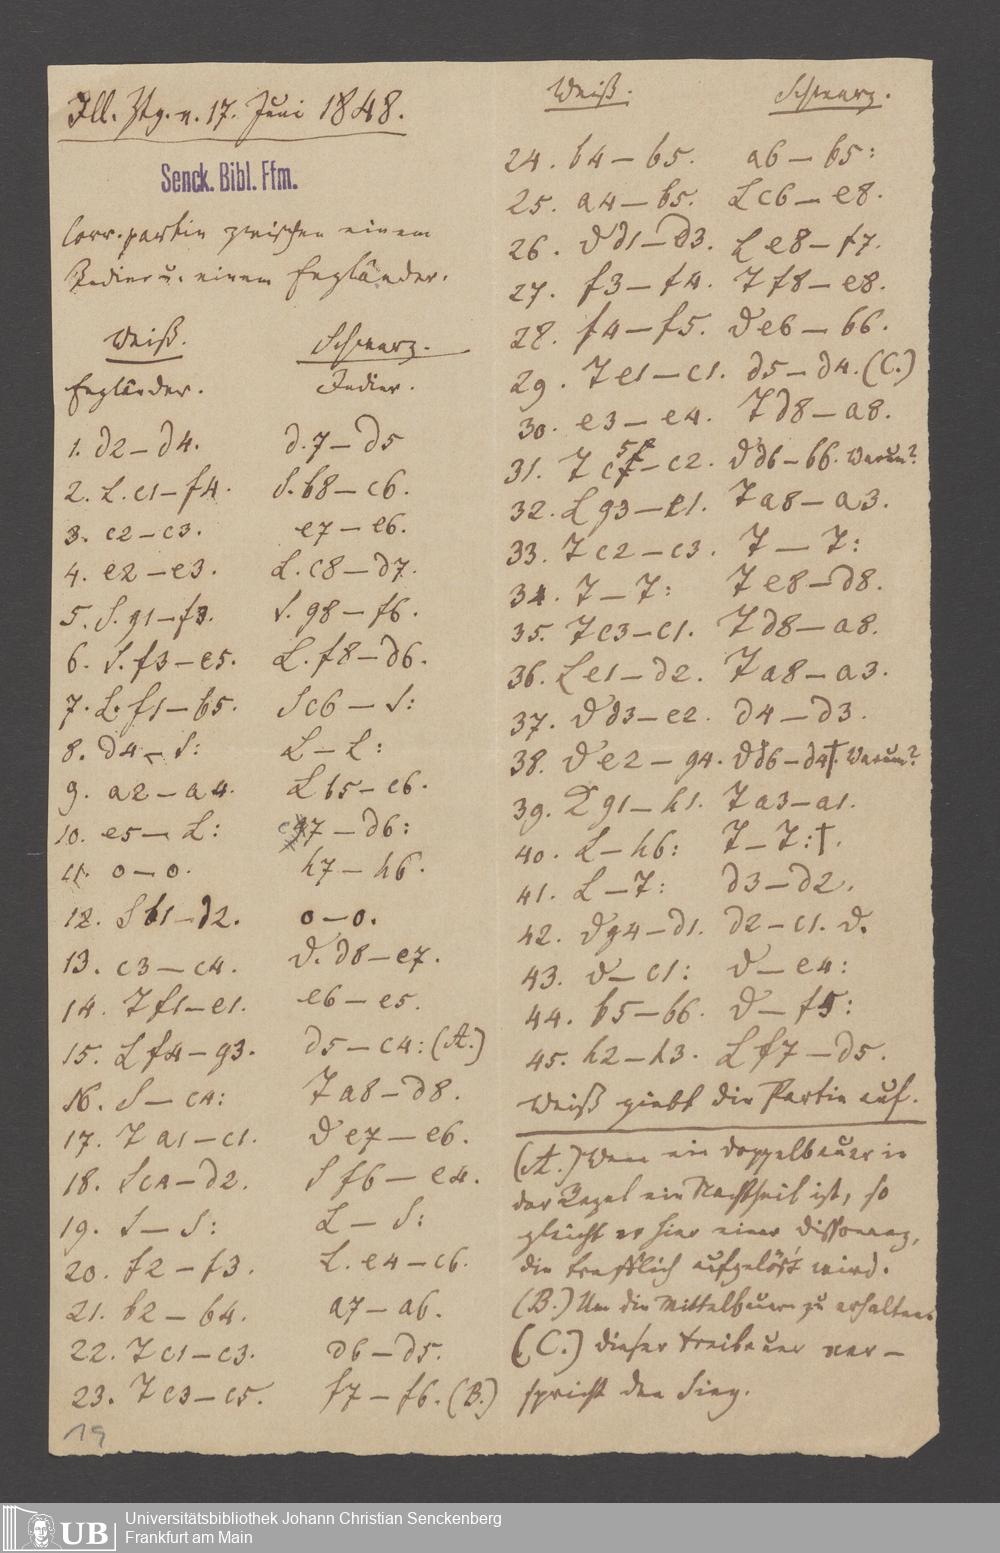 Ill. Ztg. v. 17. Juni 1848.
Senck. Bibl. Ffm.
Corr. partie zwischen einem
Indier u. einem Engländer.
Weiß. Schwarz.
Engländer. Indier.
1. d2 — d4. d.7 — d5
2. L. c1 — f4. S. b8 — c6.
3. c2 — c3. e7 — e6.
4. e2 — e3. L. c8 — d7.
5. S. g1 — f3. S. g8 — f6.
6. S. f3 — e5. L. f8 — d6.
7. L. f1 — b5. S c6 — S:
8. d4 — S: L — L:
9. a2 — a4. L b5 — c6.
10. e5 — L: c7 — d6:
11. o — o. h7 — h6.
12. S b1 — d2. o — o.
13. c3 — c4. D. d8 — e7.
14. T f1 — e1. e6 — e5.
15. L f4 — g3. d5 — c4: (A.)
16. S — c4: T a8 — d8.
17. T a1 — c1. D e7 — e6.
18. S c4 — d2. S f6 — e4.
19. S — S: L — S:
20. f2 — f3. L. e4 — c6.
21. b2 — b4. a7 — a6.
22. T c1 — c3. d6 — d5.
23. T c3 — c5. f7 — f6. (B.)
19
Weiß. Schwarz.
24. b4 — b5. a6 — b5:
25. a4 — b5. L c6 — e8.
26. D d1 — d3. L e8 — f7.
27. f3 — f4. T f8 — e8.
28. f4 — f5. D e6 — b6.
29. T e1 — c1. d5 — d4. (C.)
30. e3 — e4. T d8 — a8.
31. T c5 — c2. D d6 — b6. Warum?
32. L g3 — e1. T a8 — a3.
33. T c2 — c3. T — T:
34. T — T: T e8 — d8.
35. T c3 — c1. T d8 — a8.
36. L e1 — d2. T a8 — a3.
37. D d3 — e2. d4 — d3.
38. D e2 — g4. D d6 — d4†. Warum?
39. K g1 — h1. T a3 — a1.
40. L — h6: T — T: †.
41. L — T: d3 — d2.
42. D g4 — d1. d2 — c1. D.
43. D — c1: D — e4:
44. b5 — b6. D — f5:
45. h2 — h3. L f7 — d5.
Weiß giebt die Partie auf.
(A.) Wenn ein Doppelbauer in
der Regel ein Nachtheil ist, so
gleicht er hier einer Dissonanz,
die trefflich aufgelöst wird.
(B.) Um die Mittelbauern zu erhalten.
(C.) Dieser Freibauer ver-
spricht den Sieg.
UB
Universitätsbibliothek Johann Christian Senckenberg
Frankfurt am Main